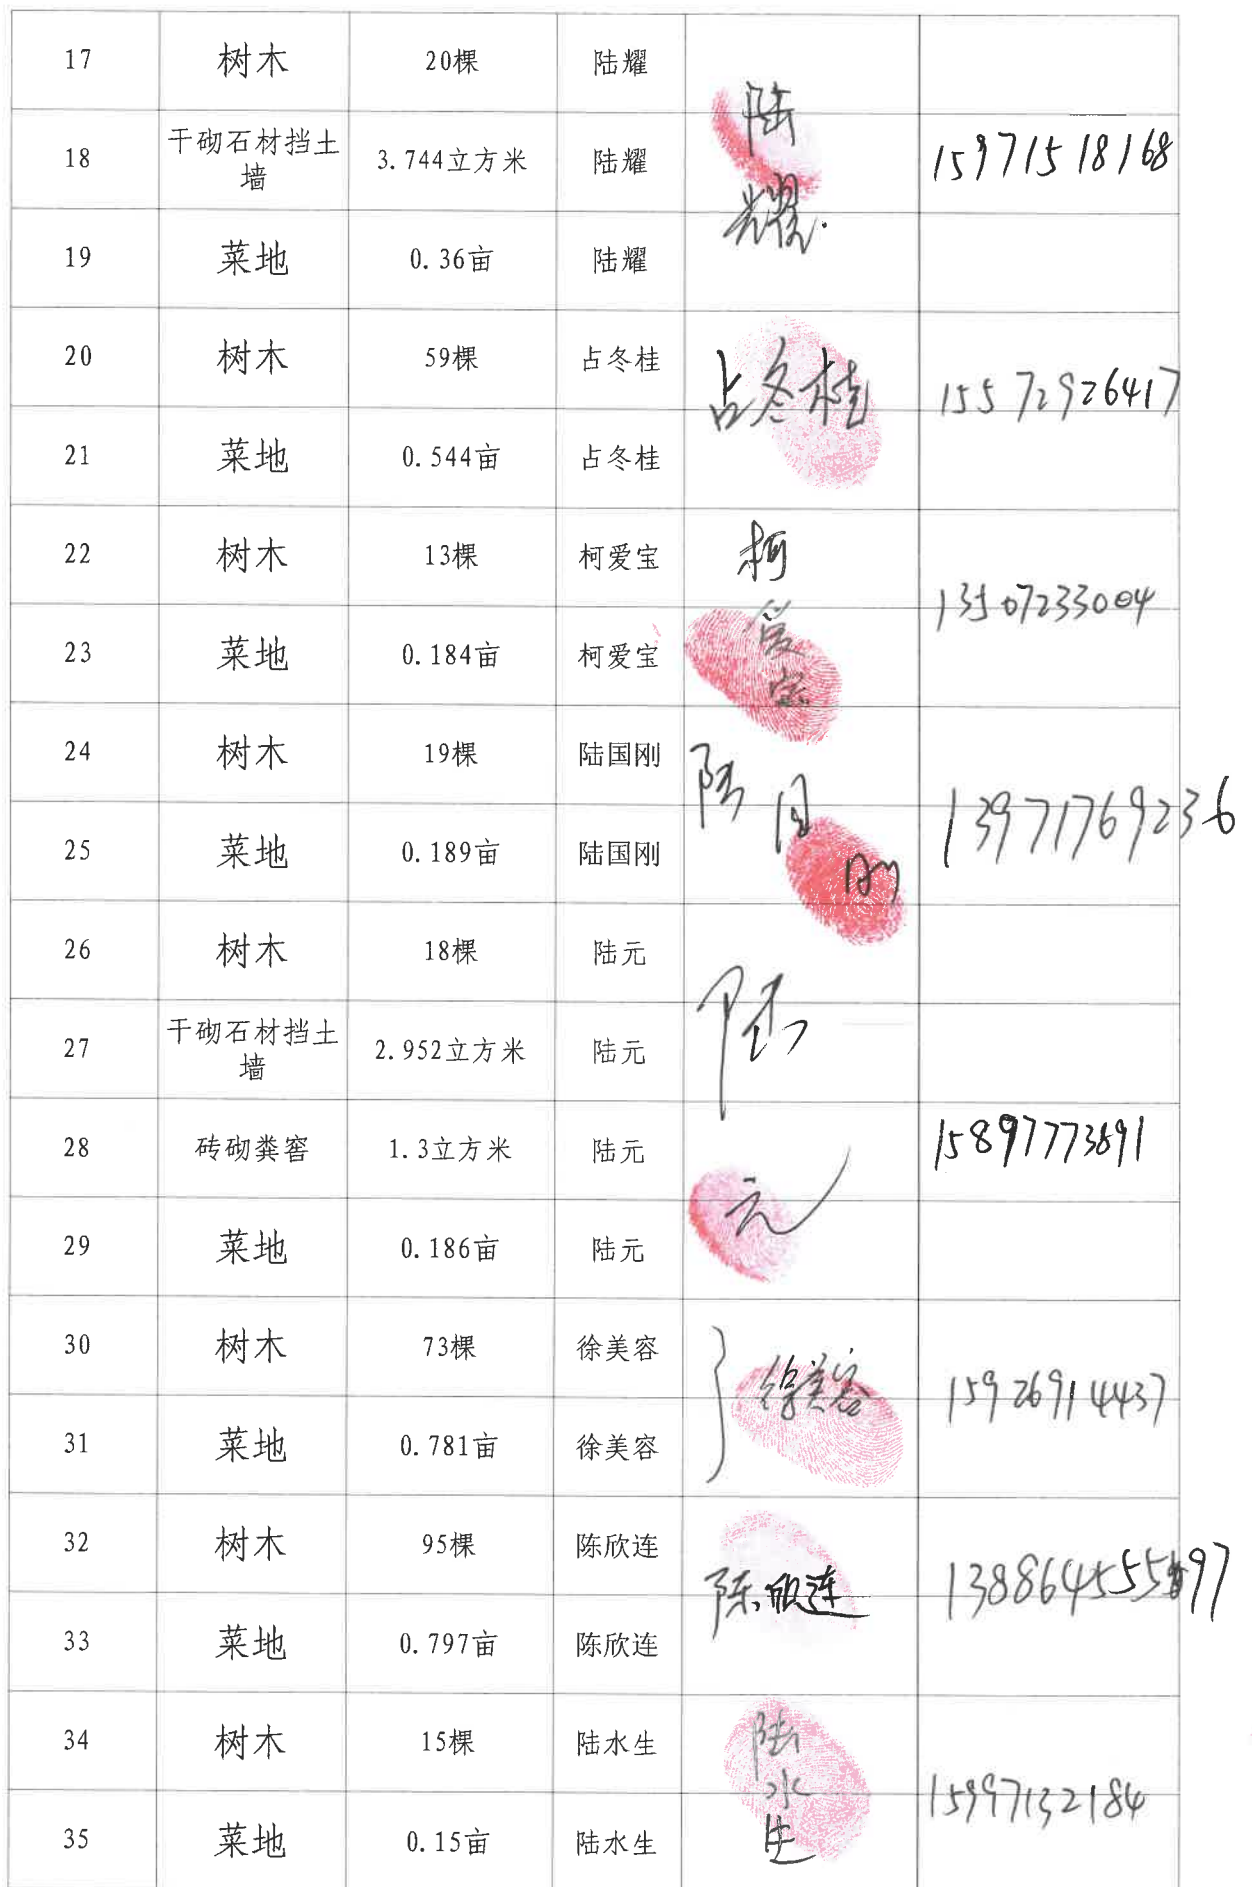 17 树木 20棵 陆耀
18 干砌石材挡土墙 3.744立方米 陆耀 陆耀. 15971518168
19 菜地 0.36亩 陆耀
20 树木 59棵 占冬桂 占冬桂 15572926417
21 菜地 0.544亩 占冬桂
22 树木 13棵 柯爱宝 柯爱宝 13507233004
23 菜地 0.184亩 柯爱宝
24 树木 19棵 陆国刚 陆国刚 13971769236
25 菜地 0.189亩 陆国刚
26 树木 18棵 陆元
27 干砌石材挡土墙 2.952立方米 陆元 陆元
28 砖砌粪窖 1.3立方米 陆元 15897773891
29 菜地 0.186亩 陆元
30 树木 73棵 徐美容 徐美容 15926914437
31 菜地 0.781亩 徐美容
32 树木 95棵 陈欣连 陈欣连
33 菜地 0.797亩 陈欣连
34 树木 15棵 陆水生 陆水生 15997132184
35 菜地 0.15亩 陆水生